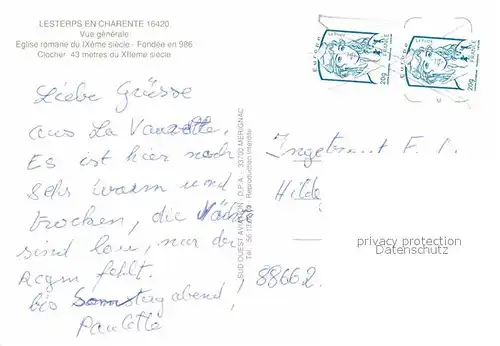 LESTERPS EN CHARENTE 16420
Vue générale
Eglise romane du IXème siècle - Fondée en 986
Clocher 43 mètres du XIIème siècle
Liebe Grüsse
aus La
Es ist hier noch
sehr warm und
trocken, die Nächte
sind lau, nur der
Regen fehlt.
bis Samstag abend,
Paulette
SUD OUEST AVIATION - D.P.A. - 33700 MERIGNAC
Reproduction interdite
Europe
LA POSTE
FRANCE
20g
Europe
FRANCE
20g
F.
Hilde
88662.
privacy protection
Datenschutz